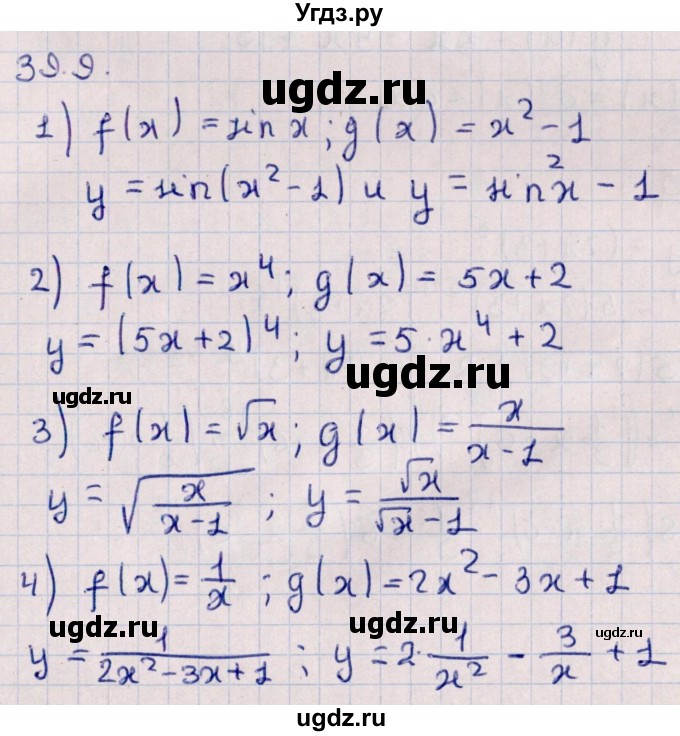 Угдз.ру
39.9.
ugdz.ru
1) f(x) = sin x; g(x) = x² - 1
y = sin(x² - 1) и y = sin²x - 1
2) f(x) = x⁴; g(x) = 5x + 2
y = (5x + 2)⁴; y = 5·x⁴ + 2
ugdz.ru
ugdz.ru
3) f(x) = √x; g(x) = x/(x - 1)
y = √(x/(x - 1)); y = √x/(√x - 1)
4) f(x) = 1/x; g(x) = 2x² - 3x + 1
ugdz.ru
ugdz.ru
ugdz.ru
y = 1/(2x² - 3x + 1); y = 2·1/x² - 3/x + 1
ugdz.ru